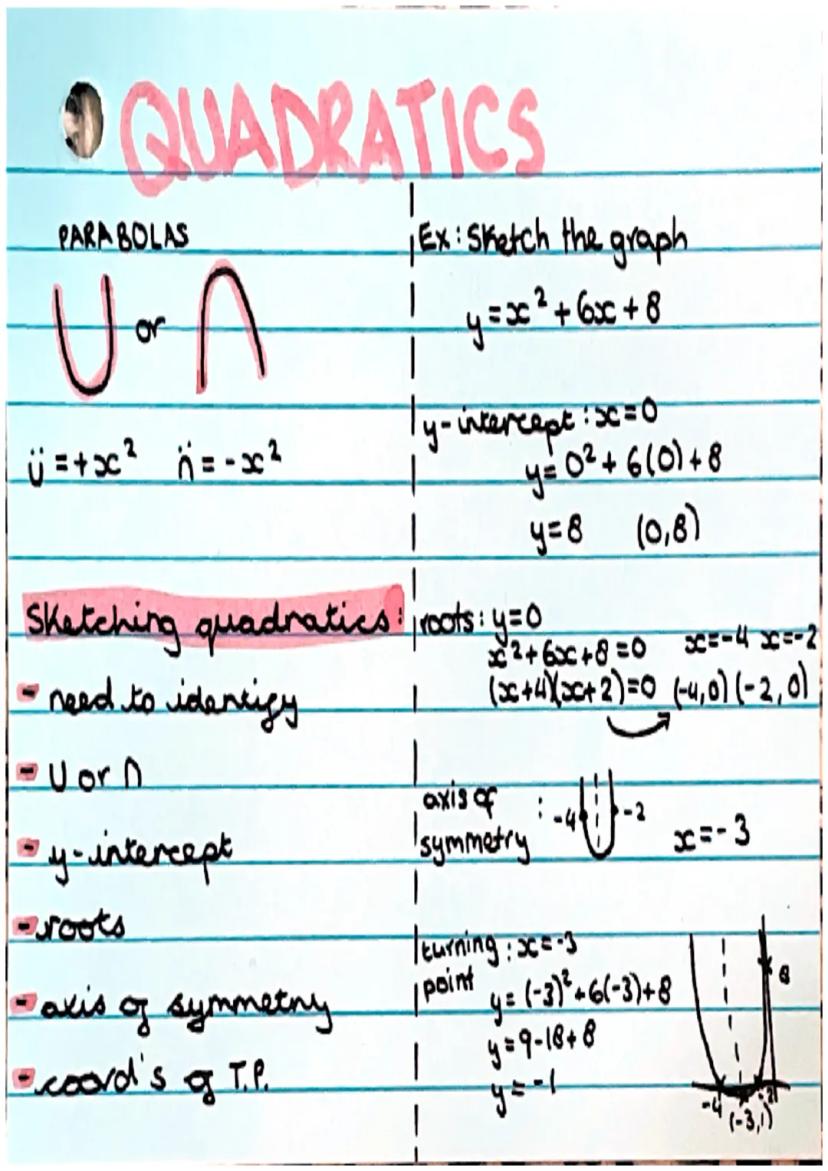 QUADRATICS
PARABOLAS
U or ∩
Ü = +x² n̈ = -x²
Sketching quadratics:
- need to identify
- U or ∩
- y-intercept
- roots
- axis of symmetry
- coord's of T.P.
Ex: Sketch the graph
y = x² + 6x + 8
y-intercept: x=0
y = 0² + 6(0) + 8
y = 8 (0,8)
roots: y=0
x² + 6x + 8 = 0 x=-4 x=-2
(x+4)(x+2)=0 (-4,0) (-2,0)
axis of
symmetry : -4 -2 x=-3
turning : x=-3
point
y = (-3)² + 6(-3) + 8
y = 9 - 18 + 8
y = -1
8
-4 -2
(-3,1)